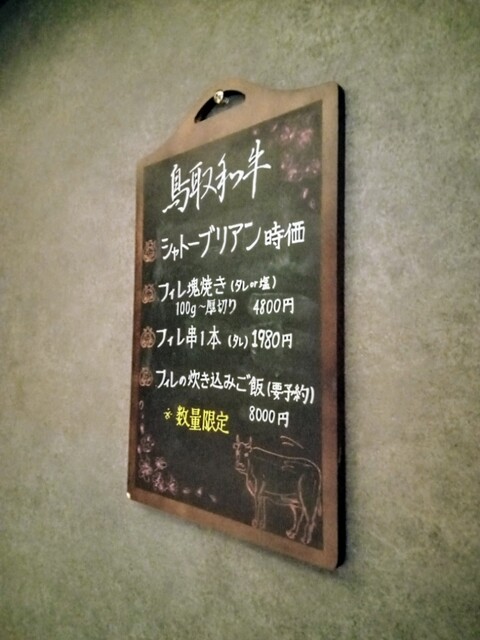 鳥取和牛
シャトーブリアン時価
フィレ塊焼き(タレor塩)
100g〜厚切り 4800円
フィレ串1本(タレ)1980円
フィレの炊き込みご飯(要予約)
※数量限定 8000円